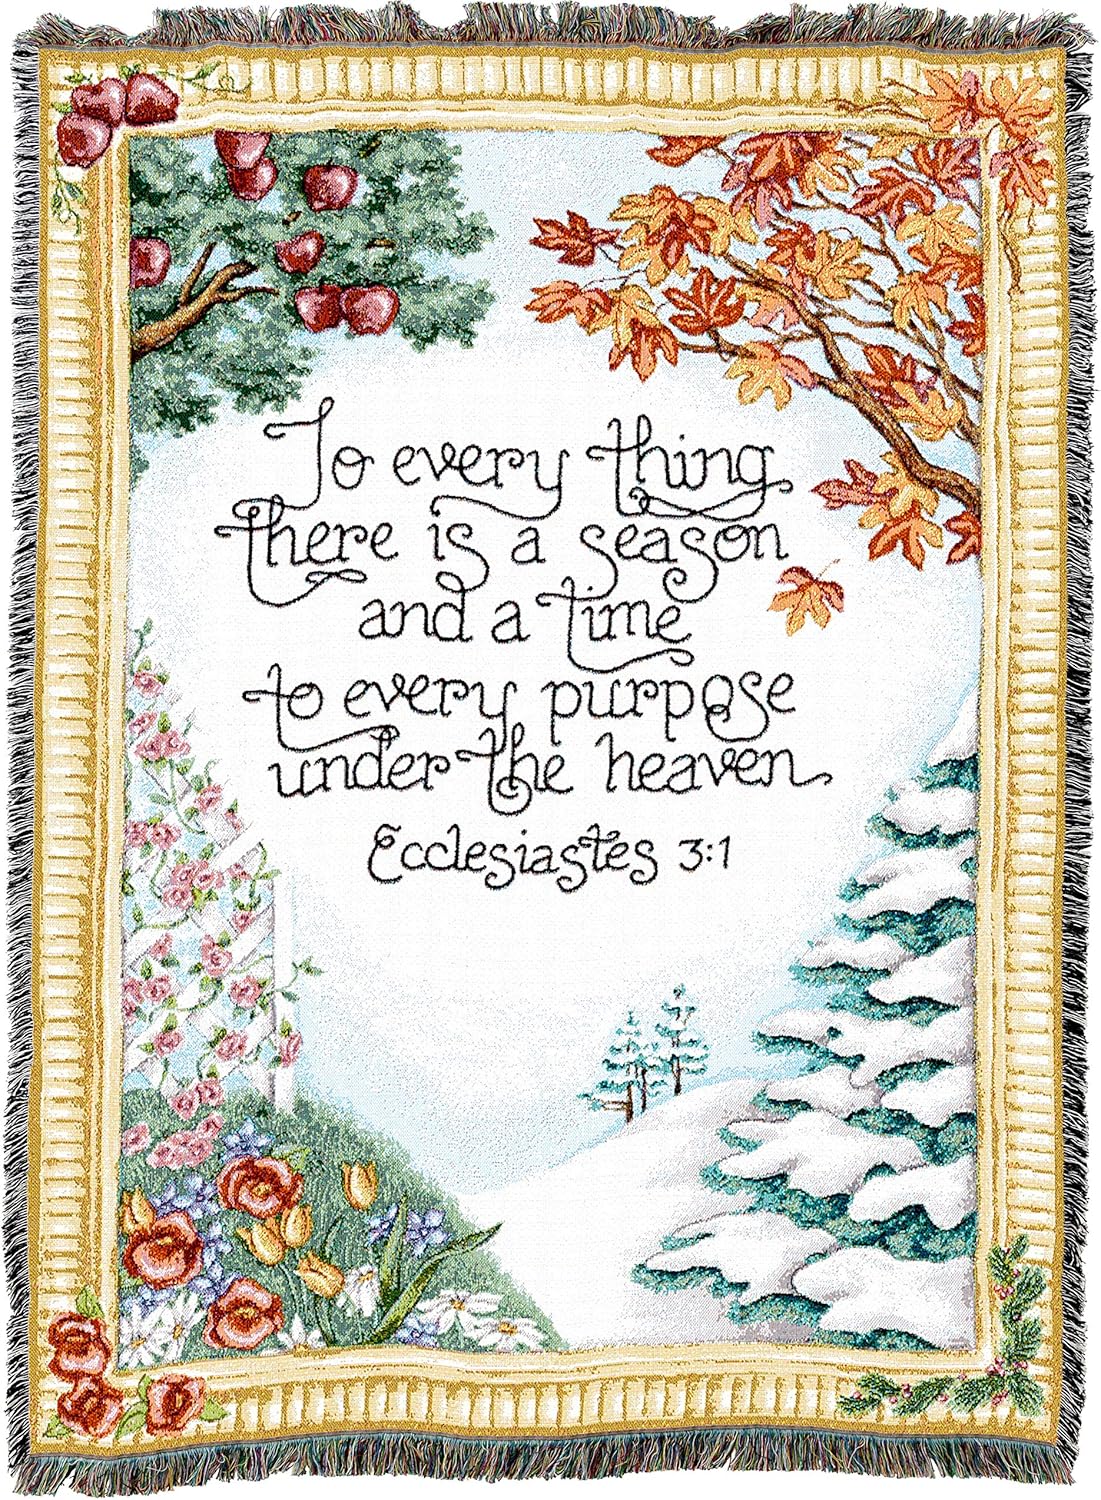 To every thing
there is a season
and a time
to every purpose
under the heaven.
Ecclesiastes 3:1